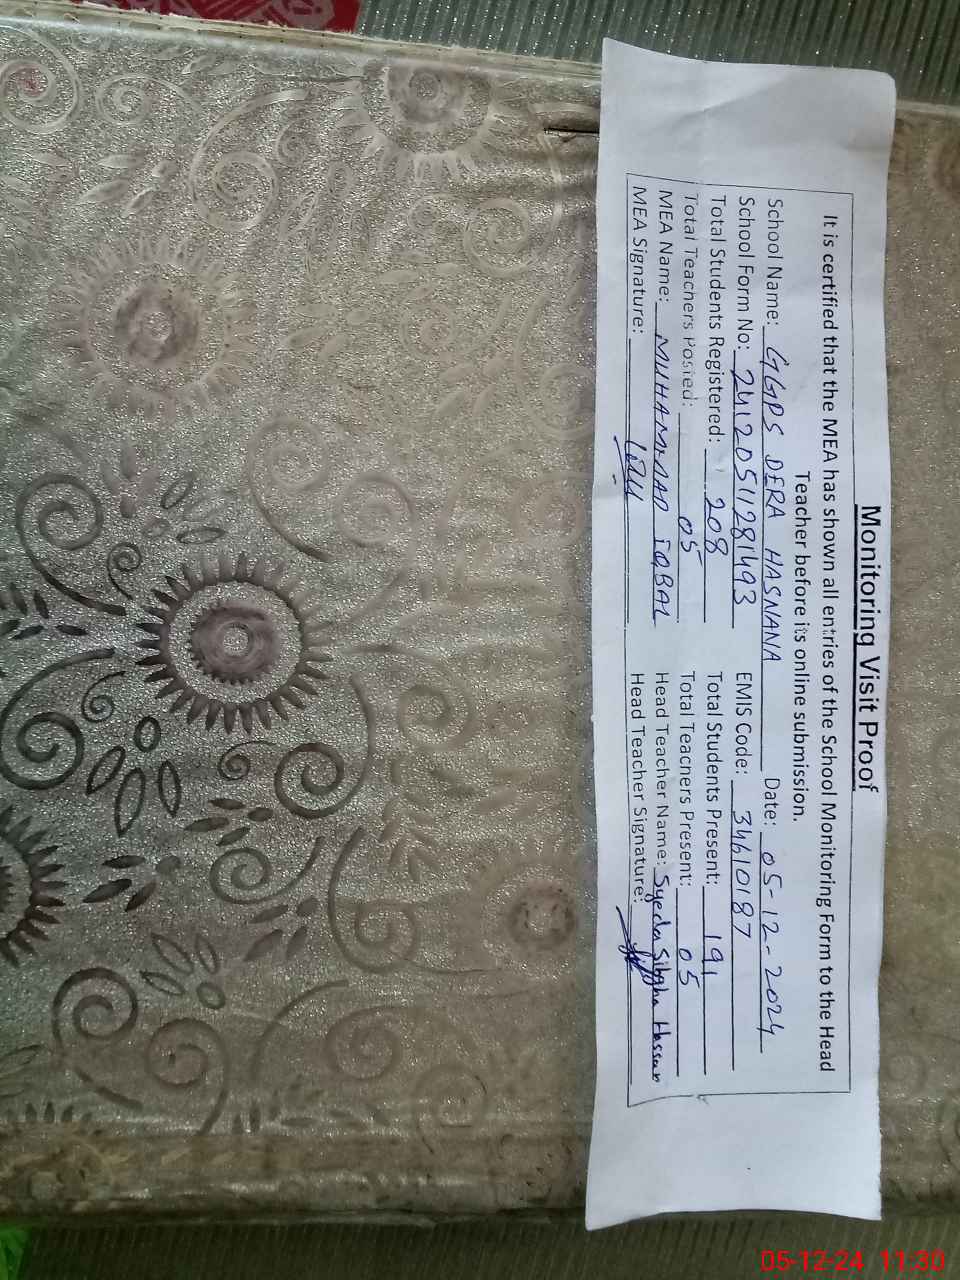 Monitoring Visit Proof
It is certified that the MEA has shown all entries of the School Monitoring Form to the Head
Teacher before its online submission.
School Name: GGPS DERA HASNANA Date: 05-12-2024
School Form No: 24120511281493 EMIS Code: 34610187
Total Students Registered: 208 Total Students Present: 191
Total Teachers Posted: 05 Total Teachers Present: 05
MEA Name: MUHAMMAD IQBAL Head Teacher Name: Syeda Sibgha Hassan
MEA Signature: Head Teacher Signature:
05-12-24 11:30